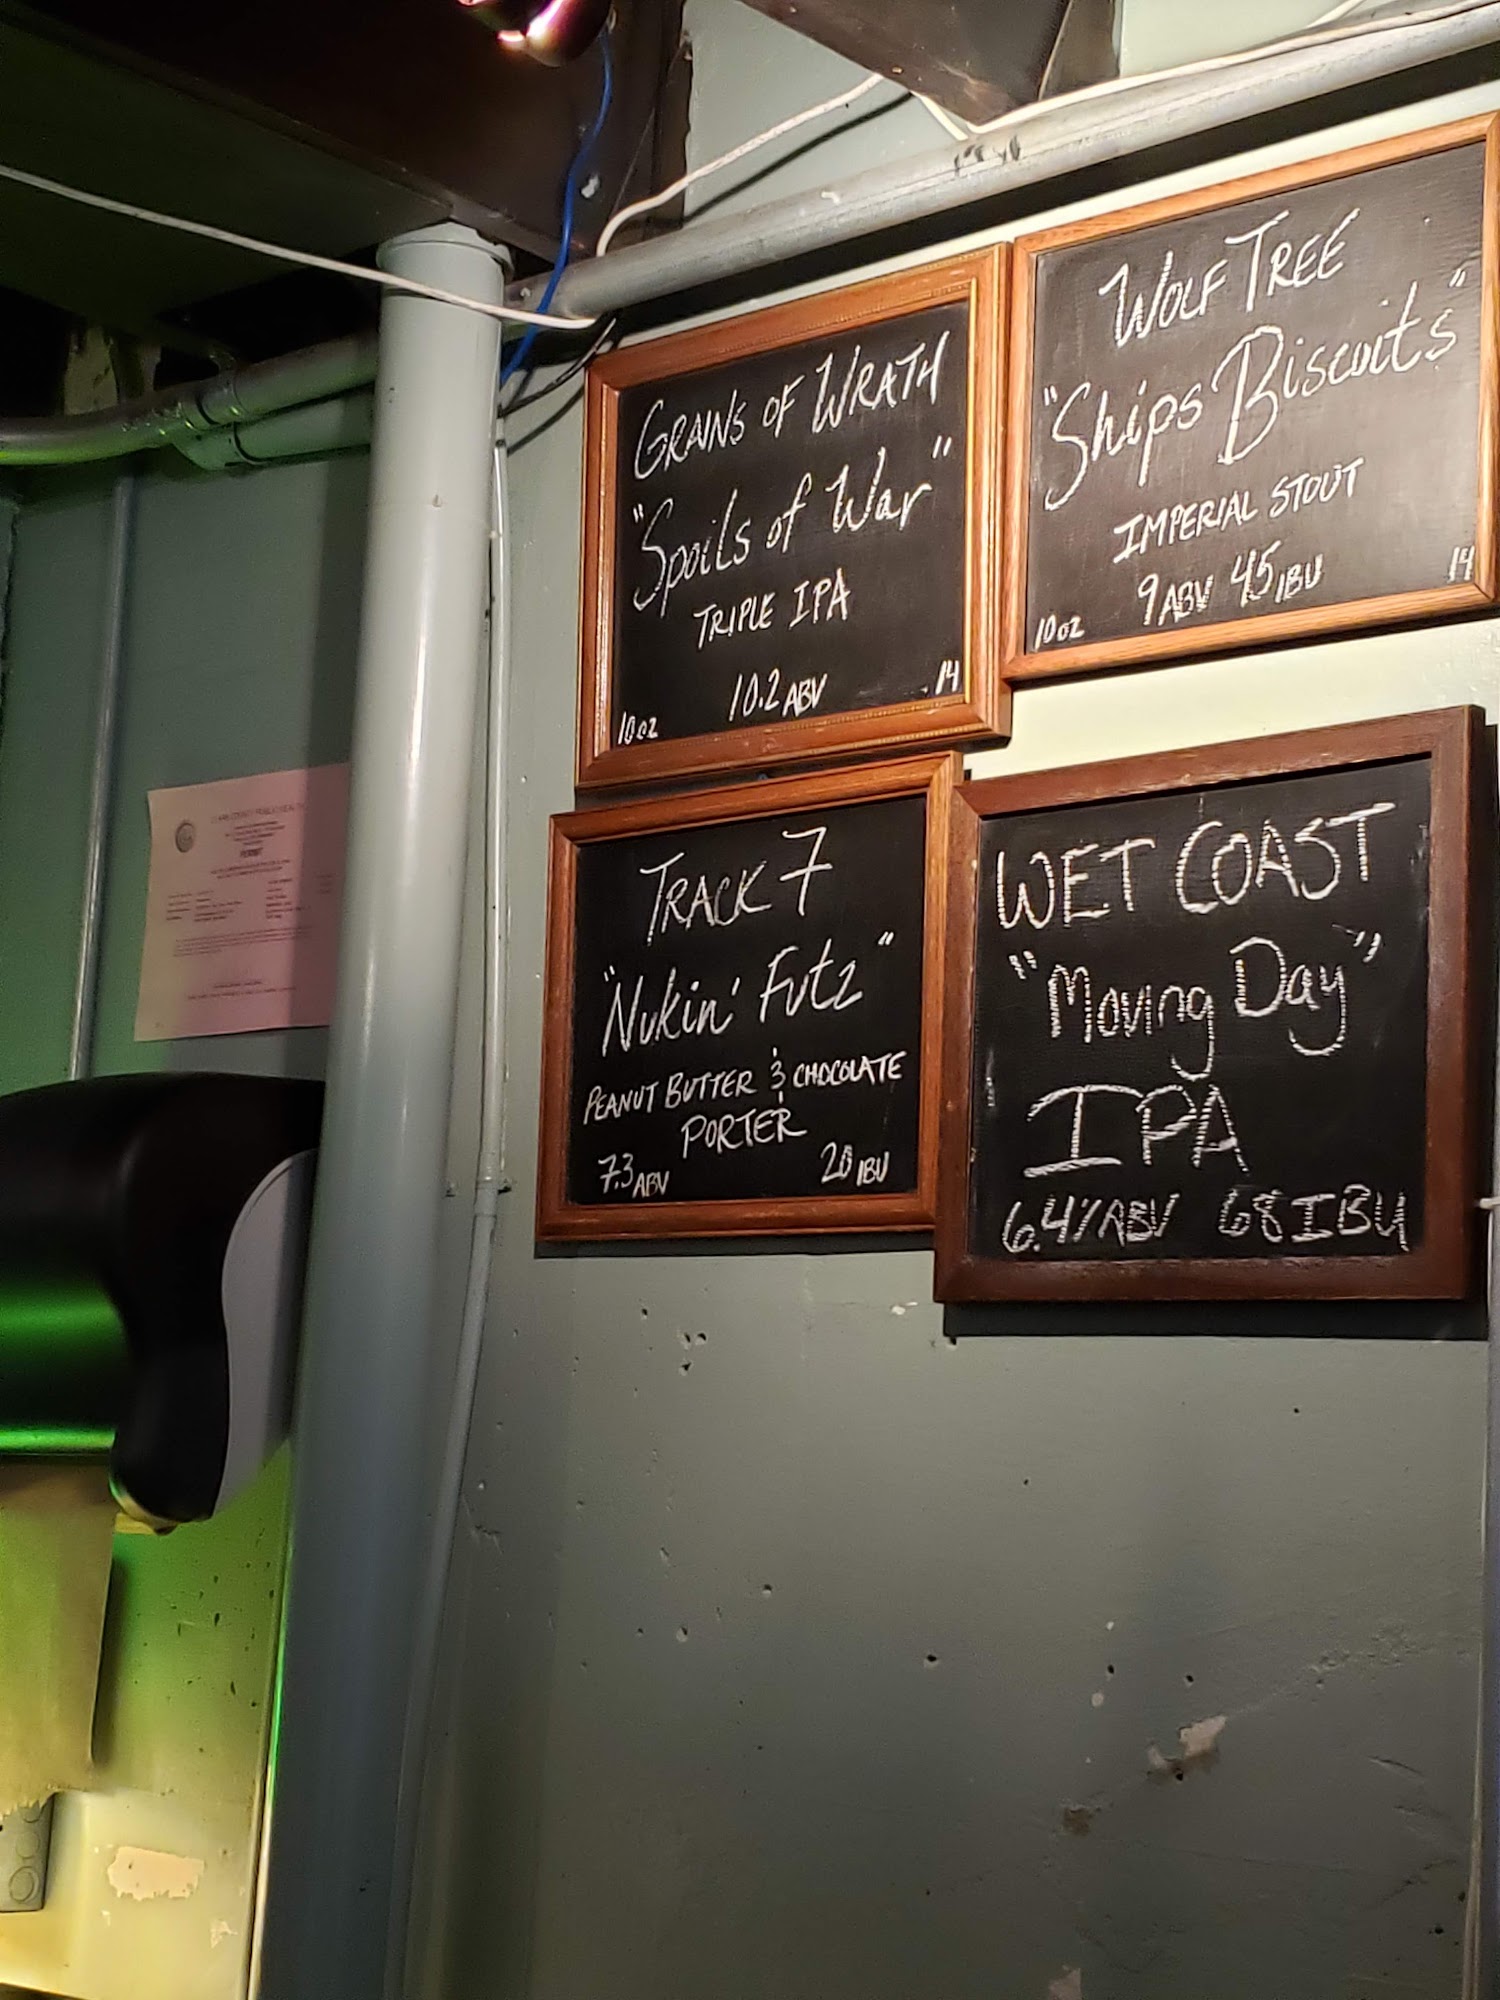 GRAINS OF WRATH
"Spoils of War"
TRIPLE IPA
10.2 ABV
10oz
14
WOLF TREE
"Ships Biscuits"
IMPERIAL STOUT
9 ABV 45 IBU
10oz
14
TRACK 7
"Nukin' Futz"
PEANUT BUTTER & CHOCOLATE
PORTER
7.3 ABV
20 IBU
WET COAST
"Moving Day"
IPA
6.4% ABV 68 IBU
CLARK COUNTY PUBLIC HEALTH
PERMIT